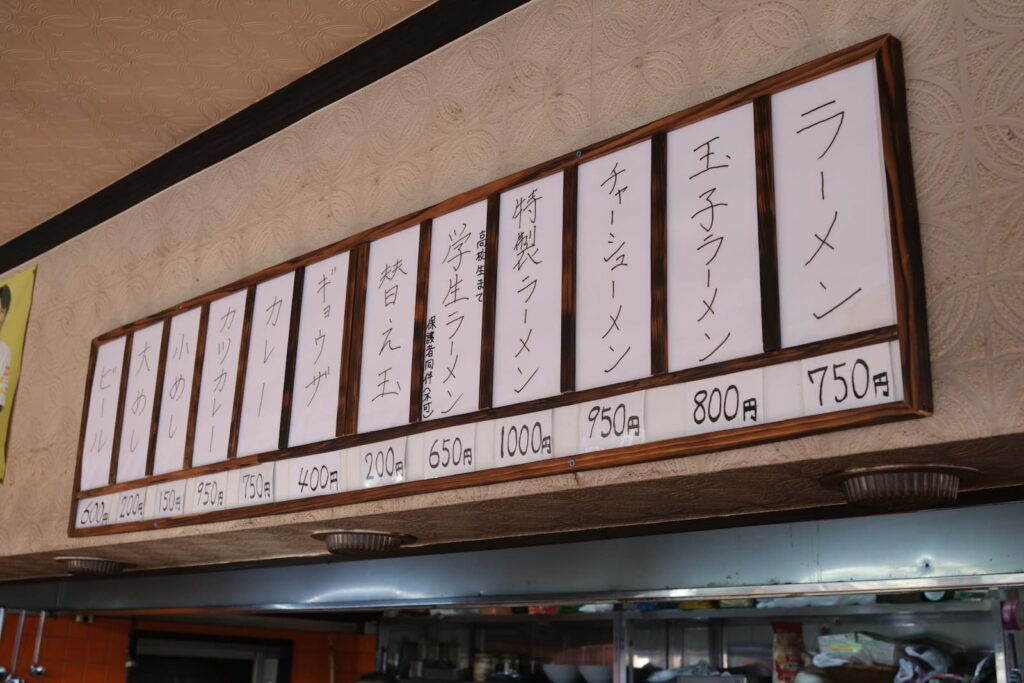 ラーメン
750円
玉子ラーメン
800円
チャーシューメン
950円
特製ラーメン
1000円
高校生まで
学生ラーメン
保護者同伴(不可)
650円
替え玉
200円
ギョウザ
400円
カレー
750円
カツカレー
950円
小めし
150円
大めし
200円
ビール
600円